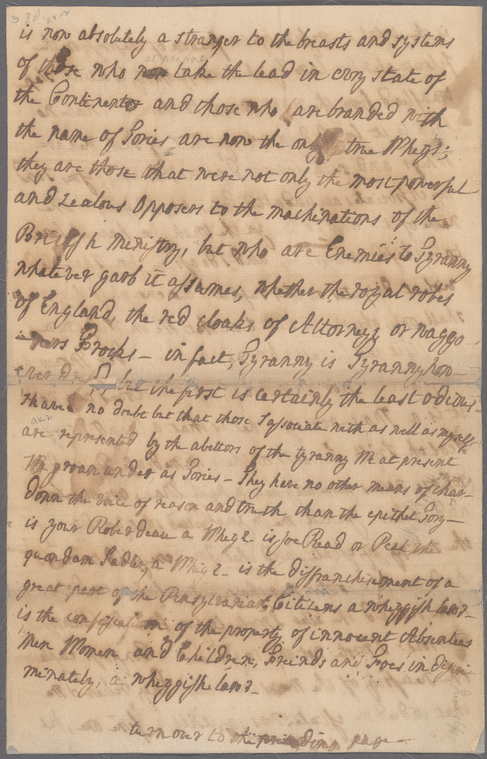 is now absolutely a stranger to the breasts and systems
of those who now take the lead in every state of
the Continent and those who are branded with
the name of Tories are now the only true Whegs;
they are those that were not only the most powerful
and zealous Opposers to the machinations of the
British ministry, but who are Enemies to Tyranny
whatever garb it assumes, whether the royal robes
of England, the red cloaks of Attorneys or waggo
-ners Frocks – in fact, Tyranny is Tyranny how
ever but the first is certainly the least odious –
I have no doubt but that those I associate with as well as myself
are represented by the abettors of the tyranny We at present
We groan under as Tories – They have no other means of
down the voice of reason and truth than the epithet Tory –
is your Roberdeau a Whig? is Joe Read or Peal, the
quondam Sadler, a Whig? – is the disfranchisement of a
great part of the Pensylvanian Citizens a whiggish law? –
is the confiscation of the property of innocent Absentees
Men Women and Children, Freinds and Foes indiscri
minately, a whiggish law? –
turn over to the preceding page –